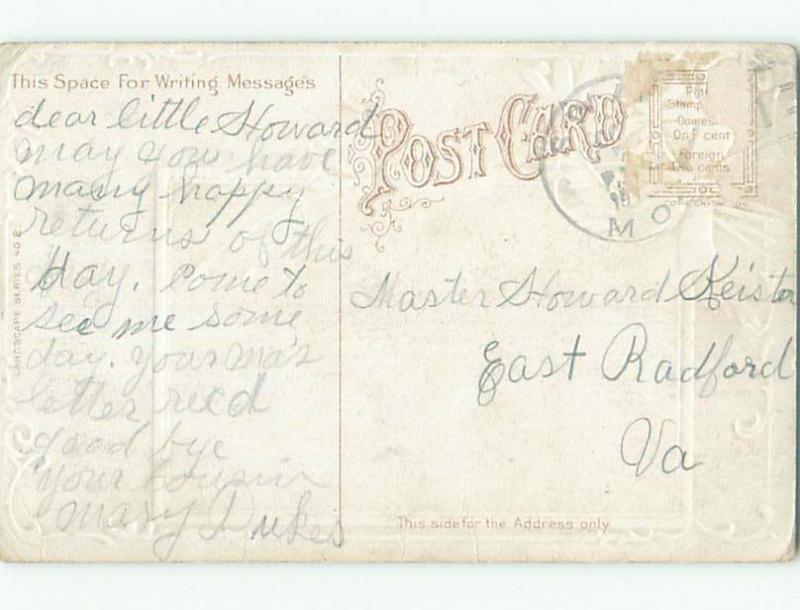 This Space For Writing Messages
dear little Howard
may you have
many happy
returns of this
day. Come to
see me some
day. your Ma's
letter recd
good bye
your Cousin
Mary Dukes
LANDSCAPE SERIES NO 2
POST CARD
Stamp
Domes
One cent
Foreign
Two cents
MO
Master Howard Keister
East Radford
Va
This side for the Address only